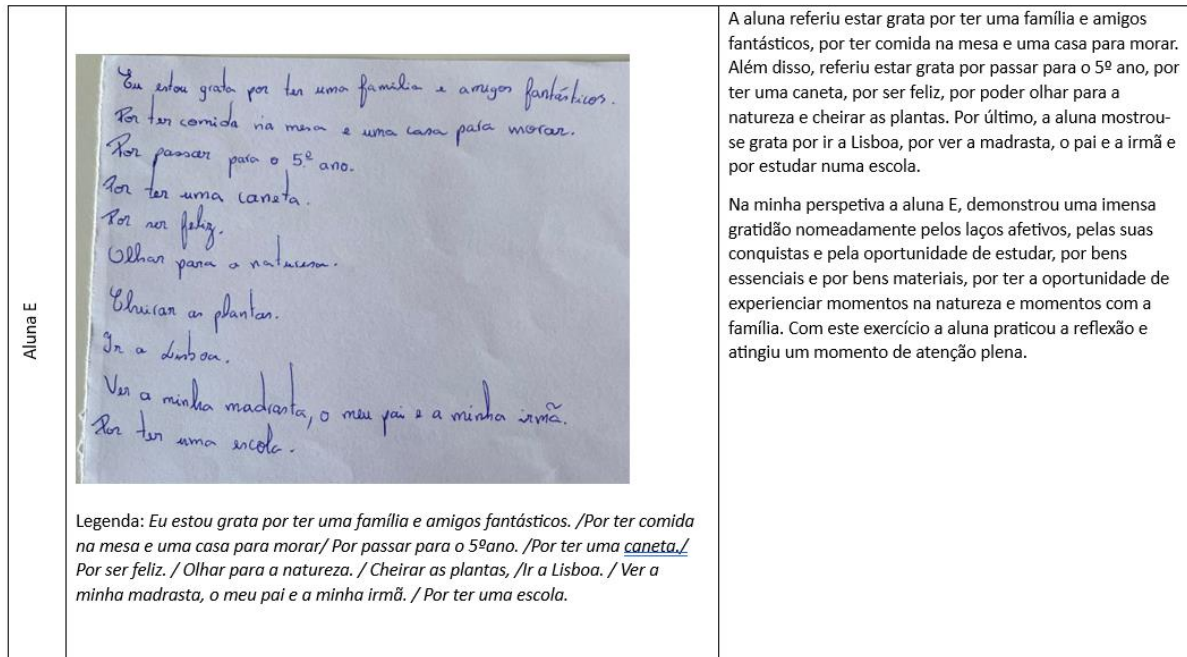 Aluna E
Eu estou grata por ter uma família e amigos fantásticos.
Por ter comida na mesa e uma casa para morar.
Por passar para o 5º ano.
Por ter uma caneta.
Por ser feliz.
Olhar para a naturesa.
Cheirar as plantas.
Ir a Lisboa.
Ver a minha madrasta, o meu pai e a minha irmã.
Por ter uma escola.
Legenda: Eu estou grata por ter uma família e amigos fantásticos. /Por ter comida
na mesa e uma casa para morar/ Por passar para o 5ºano. /Por ter uma caneta./
Por ser feliz. / Olhar para a natureza. / Cheirar as plantas, /Ir a Lisboa. / Ver a
minha madrasta, o meu pai e a minha irmã. / Por ter uma escola.
A aluna referiu estar grata por ter uma família e amigos
fantásticos, por ter comida na mesa e uma casa para morar.
Além disso, referiu estar grata por passar para o 5º ano, por
ter uma caneta, por ser feliz, por poder olhar para a
natureza e cheirar as plantas. Por último, a aluna mostrou-
se grata por ir a Lisboa, por ver a madrasta, o pai e a irmã e
por estudar numa escola.
Na minha perspetiva a aluna E, demonstrou uma imensa
gratidão nomeadamente pelos laços afetivos, pelas suas
conquistas e pela oportunidade de estudar, por bens
essenciais e por bens materiais, por ter a oportunidade de
experienciar momentos na natureza e momentos com a
família. Com este exercício a aluna praticou a reflexão e
atingiu um momento de atenção plena.